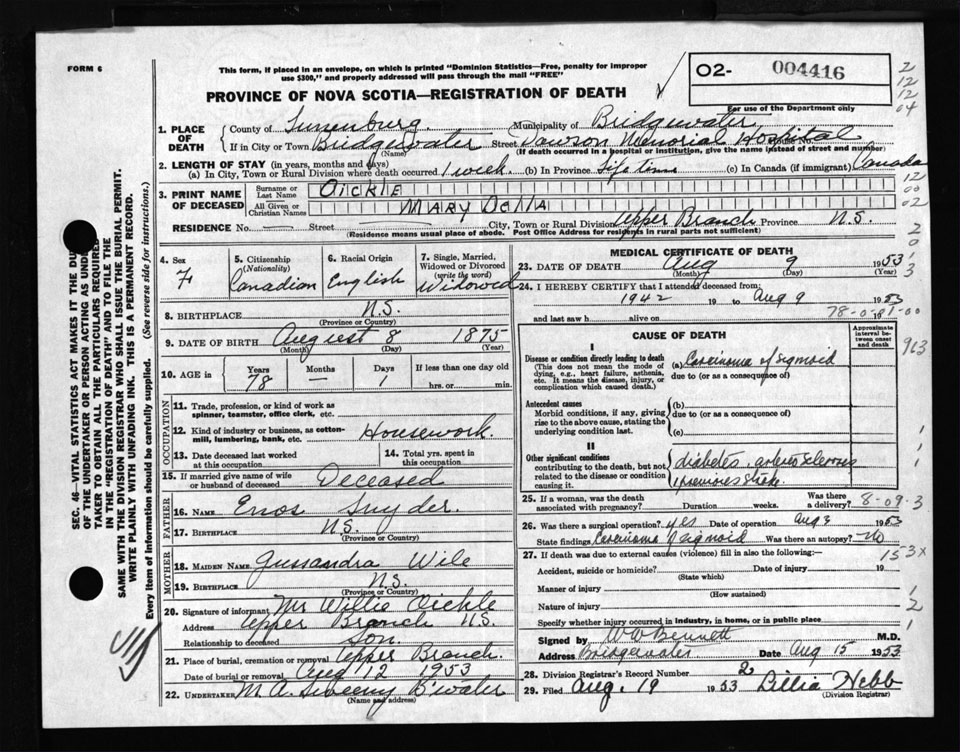 FORM 6
This form, if placed in an envelope, on which is printed "Dominion Statistics—Free, penalty for improper
use $300," and properly addressed will pass through the mail "FREE"
PROVINCE OF NOVA SCOTIA—REGISTRATION OF DEATH
02- 004416
For use of the Department only
2
12
12
04
1. PLACE OF DEATH
County of Lunenburg. Municipality of Bridgewater
If in City or Town Bridgewater (Name) Street Dawson Memorial Hospital House No.
(If death occurred in a hospital or institution, give the name instead of street and number)
2. LENGTH OF STAY (in years, months and days)
(a) In City, Town or Rural Division where death occurred 1 week. (b) In Province Life time (c) In Canada (if immigrant) Canada
12
00
02
3. PRINT NAME OF DECEASED
Surname or Last Name OICKLE
All Given or Christian Names MARY Della
RESIDENCE No. — Street City, Town or Rural Division Upper Branch Province N.S.
(Residence means usual place of abode. Post Office Address for residents in rural parts not sufficient)
SEC. 46—VITAL STATISTICS ACT MAKES IT THE DUTY
OF THE UNDERTAKER OR PERSON ACTING AS UNDER-
TAKER TO OBTAIN ALL THE PARTICULARS REQUIRED
IN THE "REGISTRATION OF DEATH" AND TO FILE THE
SAME WITH THE DIVISION REGISTRAR WHO SHALL ISSUE THE BURIAL PERMIT.
WRITE PLAINLY WITH UNFADING INK. THIS IS A PERMANENT RECORD.
Every item of information should be carefully supplied. (See reverse side for instructions.)
4. Sex
F
5. Citizenship (Nationality)
Canadian
6. Racial Origin
English
7. Single, Married, Widowed or Divorced (write the word)
Widowed
8. BIRTHPLACE N.S.
(Province or Country)
9. DATE OF BIRTH August 8 1875
(Month) (Day) (Year)
10. AGE in
Years 78
Months —
Days 1
If less than one day old
hrs. or min.
OCCUPATION
11. Trade, profession, or kind of work as
spinner, teamster, office clerk, etc.
12. Kind of industry or business, as cotton-
mill, lumbering, bank, etc. Housework.
13. Date deceased last worked
at this occupation
14. Total yrs. spent in
this occupation
15. If married give name of wife
or husband of deceased Deceased
FATHER
16. Name Enos Snyder.
17. BIRTHPLACE N.S.
(Province or Country)
MOTHER
18. MAIDEN NAME Gussandra Wile
19. BIRTHPLACE N.S.
(Province or Country)
20. Signature of informant Mr Willie Oickle
Address Upper Branch N.S.
Relationship to deceased Son.
21. Place of burial, cremation or removal Upper Branch.
Date of burial or removal Aug 12 1953
22. UNDERTAKER M.A. Sweeny B'water
(Name and address)
MEDICAL CERTIFICATE OF DEATH
23. DATE OF DEATH Aug 9 1953
(Month) (Day) (Year)
24. I HEREBY CERTIFY that I attended deceased from:
1942 19 to Aug 9 1953
and last saw h alive on 19
78-0-01-00
CAUSE OF DEATH
Approximate interval between onset and death
I
Disease or condition directly leading to death
(This does not mean the mode of
dying, e.g., heart failure, asthenia,
etc. It means the disease, injury, or
complication which caused death.)
(a) Carcinoma of sigmoid
due to (or as a consequence of)
Antecedent causes
Morbid conditions, if any, giving
rise to the above cause, stating the
underlying condition last.
(b)
due to (or as a consequence of)
(c)
II
Other significant conditions
contributing to the death, but not
related to the disease or condition
causing it.
diabetes, arteriosclerosis
1 previous stroke.
25. If a woman, was the death
associated with pregnancy? Duration weeks. Was there a delivery?
8-09-3
26. Was there a surgical operation? yes Date of operation Aug 3 1953
State findings Carcinoma of sigmoid Was there an autopsy? No
27. If death was due to external causes (violence) fill in also the following:—
15-3X
Accident, suicide or homicide? Date of injury 19
(State which)
Manner of injury
(How sustained)
Nature of injury
Specify whether injury occurred in industry, in home, or in public place
Signed by W W Bennett M.D.
Address Bridgewater Date Aug 15 1953
28. Division Registrar's Record Number 2
29. Filed Aug. 19 1953 Lillia Hebb
(Division Registrar)